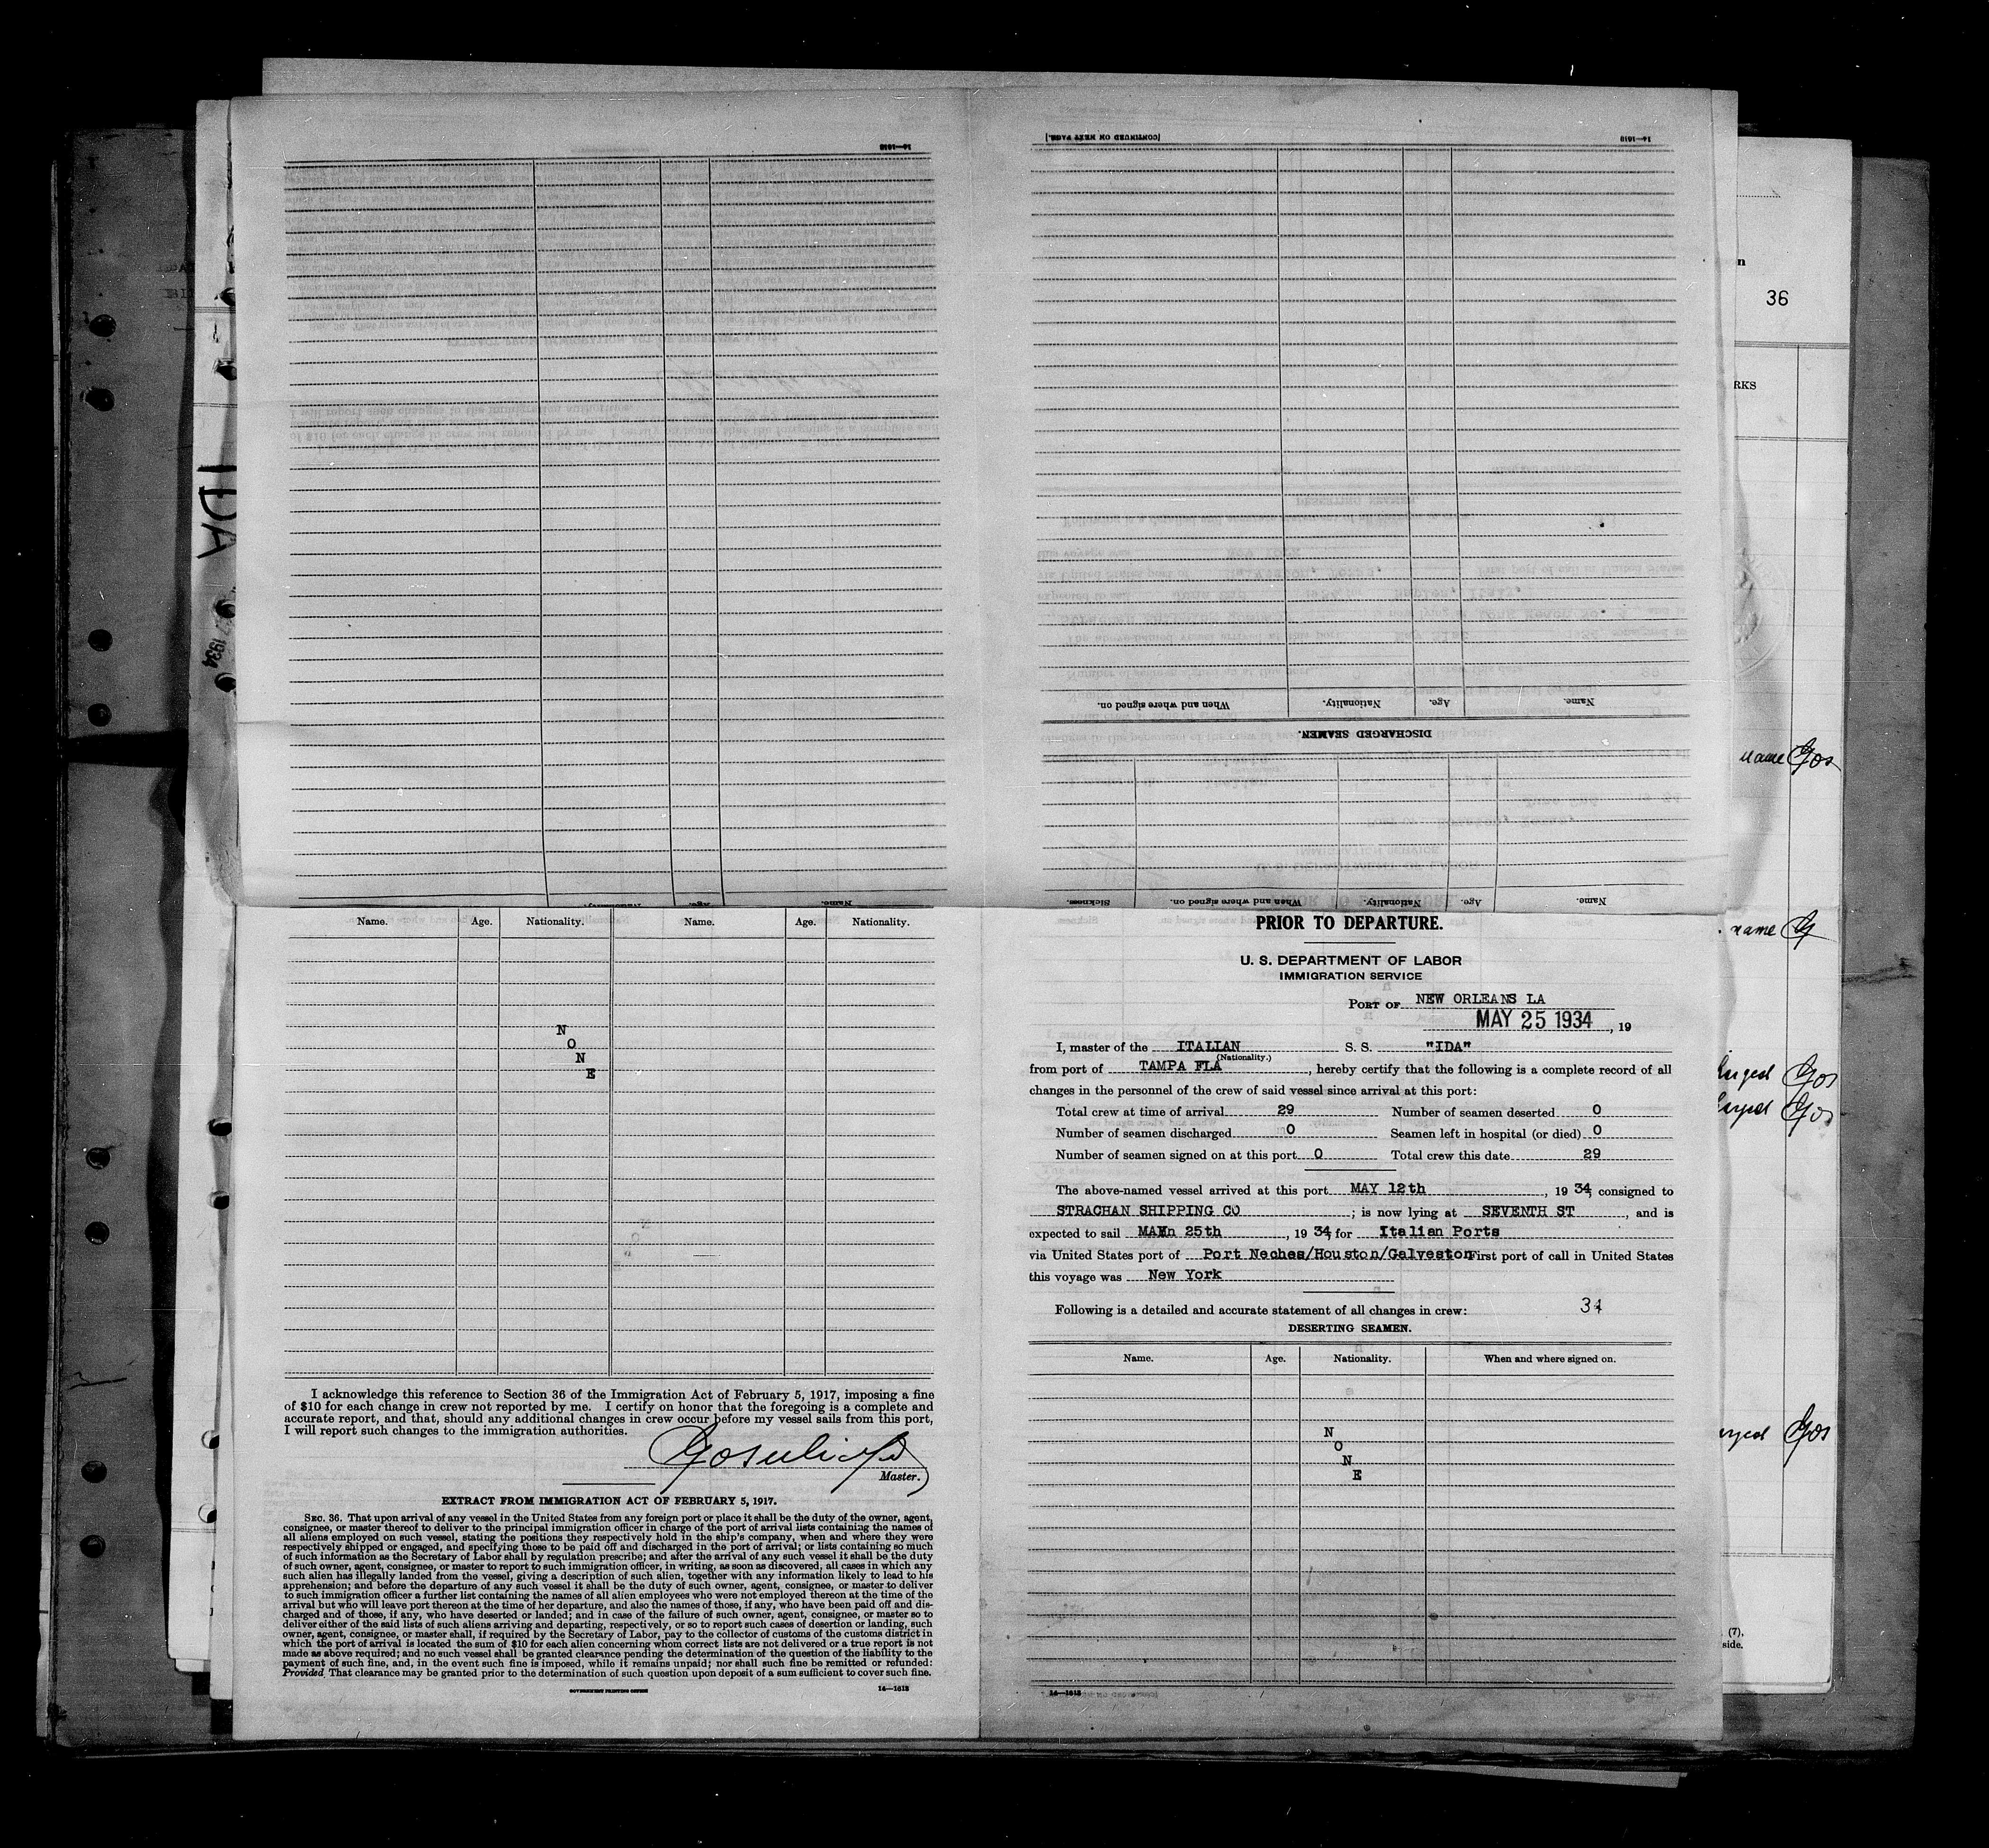 14—1613
[CONTINUED ON NEXT PAGE.]
14—1613
When and where signed on.
Nationality.
Age.
Name.
DISCHARGED SEAMEN.
Sickness.
When and where signed on.
Nationality.
Age.
Name.
IDA
1934
n
36
RKS
name Gos
name G
Gos
Gos
Gos
(7),
side.
Name. Age. Nationality. Name. Age. Nationality.
N
O
N
E
I acknowledge this reference to Section 36 of the Immigration Act of February 5, 1917, imposing a fine
of $10 for each change in crew not reported by me. I certify on honor that the foregoing is a complete and
accurate report, and that, should any additional changes in crew occur before my vessel sails from this port,
I will report such changes to the immigration authorities.
Master.
EXTRACT FROM IMMIGRATION ACT OF FEBRUARY 5, 1917.
SEC. 36. That upon arrival of any vessel in the United States from any foreign port or place it shall be the duty of the owner, agent,
consignee, or master thereof to deliver to the principal immigration officer in charge of the port of arrival lists containing the names of
all aliens employed on such vessel, stating the positions they respectively hold in the ship's company, when and where they were
respectively shipped or engaged, and specifying those to be paid off and discharged in the port of arrival; or lists containing so much
of such information as the Secretary of Labor shall by regulation prescribe; and after the arrival of any such vessel it shall be the duty
of such owner, agent, consignee, or master to report to such immigration officer, in writing, as soon as discovered, all cases in which any
such alien has illegally landed from the vessel, giving a description of such alien, together with any information likely to lead to his
apprehension; and before the departure of any such vessel it shall be the duty of such owner, agent, consignee, or master to deliver
to such immigration officer a further list containing the names of all alien employees who were not employed thereon at the time of the
arrival but who will leave port thereon at the time of her departure, and also the names of those, if any, who have been paid off and dis-
charged and of those, if any, who have deserted or landed; and in case of the failure of such owner, agent, consignee, or master so to
deliver either of the said lists of such aliens arriving and departing, respectively, or so to report such cases of desertion or landing, such
owner, agent, consignee, or master shall, if required by the Secretary of Labor, pay to the collector of customs of the customs district in
which the port of arrival is located the sum of $10 for each alien concerning whom correct lists are not delivered or a true report is not
made as above required; and no such vessel shall be granted clearance pending the determination of the question of the liability to the
payment of such fine, and, in the event such fine is imposed, while it remains unpaid; nor shall such fine be remitted or refunded:
Provided, That clearance may be granted prior to the determination of such question upon deposit of a sum sufficient to cover such fine.
GOVERNMENT PRINTING OFFICE
14—1613
PRIOR TO DEPARTURE.
U. S. DEPARTMENT OF LABOR
IMMIGRATION SERVICE
PORT OF NEW ORLEANS LA
MAY 25 1934, 19
I, master of the ITALIAN S. S. "IDA"
(Nationality.)
from port of TAMPA FLA, hereby certify that the following is a complete record of all
changes in the personnel of the crew of said vessel since arrival at this port:
Total crew at time of arrival 29 Number of seamen deserted 0
Number of seamen discharged 0 Seamen left in hospital (or died) 0
Number of seamen signed on at this port 0 Total crew this date 29
The above-named vessel arrived at this port MAY 12th, 19 34, consigned to
STRACHAN SHIPPING CO; is now lying at SEVENTH ST, and is
expected to sail 25th, 19 34, for Italian Ports
via United States port of Port Neches/Houston/Galveston First port of call in United States
this voyage was New York
Following is a detailed and accurate statement of all changes in crew: 34
DESERTING SEAMEN.
Name. Age. Nationality. When and where signed on.
N
O
N
E
14—1613